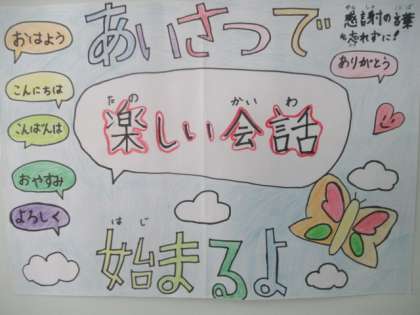 おはよう
こんにちは
こんばんは
おやすみ
よろしく
あいさつで
たの
かいわ
楽しい会話
はじ
始まるよ
かんしゃ
ことば
感謝の言葉
わす
忘れずに!
ありがとう